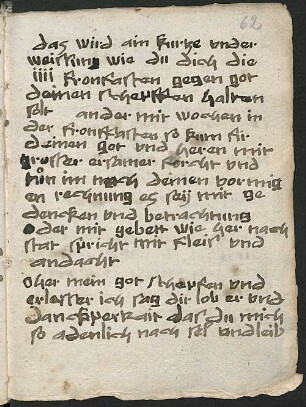 62
das wird ain kurtze vnder
weissung wie du dich die
iiii fronfasten gegen got
deinen scheppffen halten
solt ander mit wochen in
der fronfasten so kum für
deinen got vnd heren mit
grosser ersamer forcht vnd
im nach deinen vormig
en rechnung es seij mit ge
dencken vnd betrachnung
oder mit gebett wie her nach
stat spricht mit fleis vnd
andacht
O her mein got schepfer vnd
erlesser ich sag dir lob er vnd
danckperkait das du mich
so adenlich nach sel vnd leib